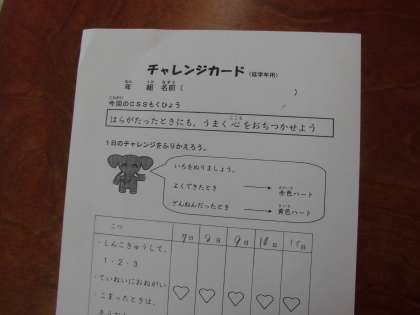 チャレンジカード（低学年用）
年　組　名前（　　　　）
今回のCSSもくひょう
はらがたったときにも、うまく心をおちつかせよう
1日のチャレンジをふりかえろう。
いろをぬりましょう。
よくできたとき　→　赤色ハート
ざんねんだったとき　→　青色ハート
こつ　7日　8日　9日　10日　11日
・しんこきゅうして、
1・2・3
・ていねいにおねがい
・こまったときは、